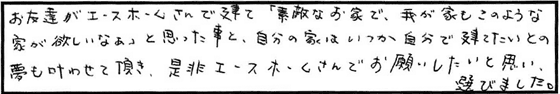 お友達がエースホームさんで建て「素敵なお家で、我が家もこのような
家が欲しいなぁ」と思った事と、自分の家はいつか自分で建てたいとの
夢も叶わせて頂き、是非エースホームさんでお願いしたいと思い、
選びました。